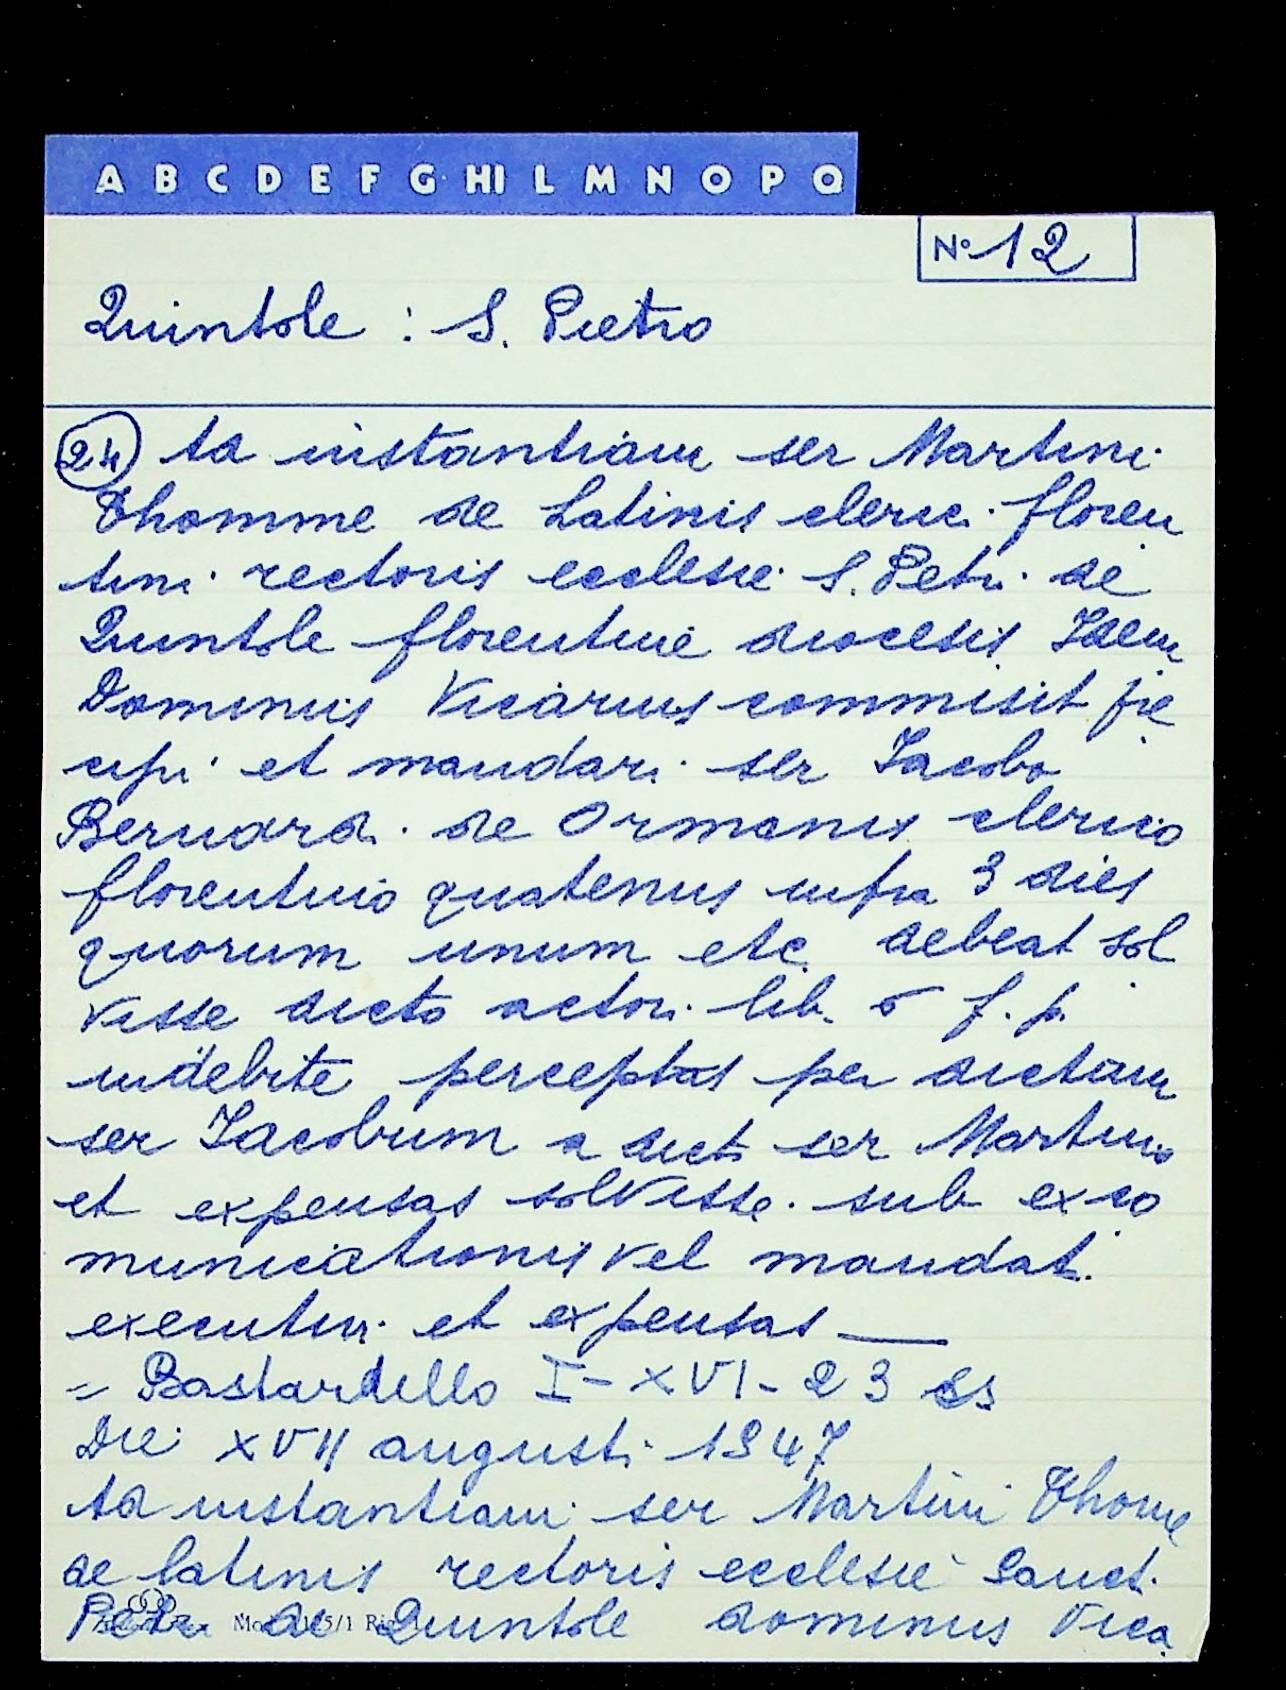 A B C D E F G HI L M N O P Q
N° 12
Quintole : S. Pietro
24 Ad instantiam ser Martini
Thomme de Latinis cleric. floren
tini rectoris ecclesie S. Petri de
Quintole florentine diocesis Idem
Dominus Vicarius commisit pre
cipi et mandari ser Iacobo
Bernardi de Ormanis clerico
florentino quatenus infra 3 dies
quorum unum etc debeat sol
visse dicto actori lib. 5 f. p.
indebite perceptas per dictam
ser Iacobum a dicti ser Martino
et expensas solvisse sub exco
municationis vel mandati
executivi et expensas
= Bastardello I - XVI - 23
Die XVII augusti 1947
Ad instantiam ser Martini Thome
de latinis rectoris ecclesie Sanct.
Petri de Quintole dominus Vica